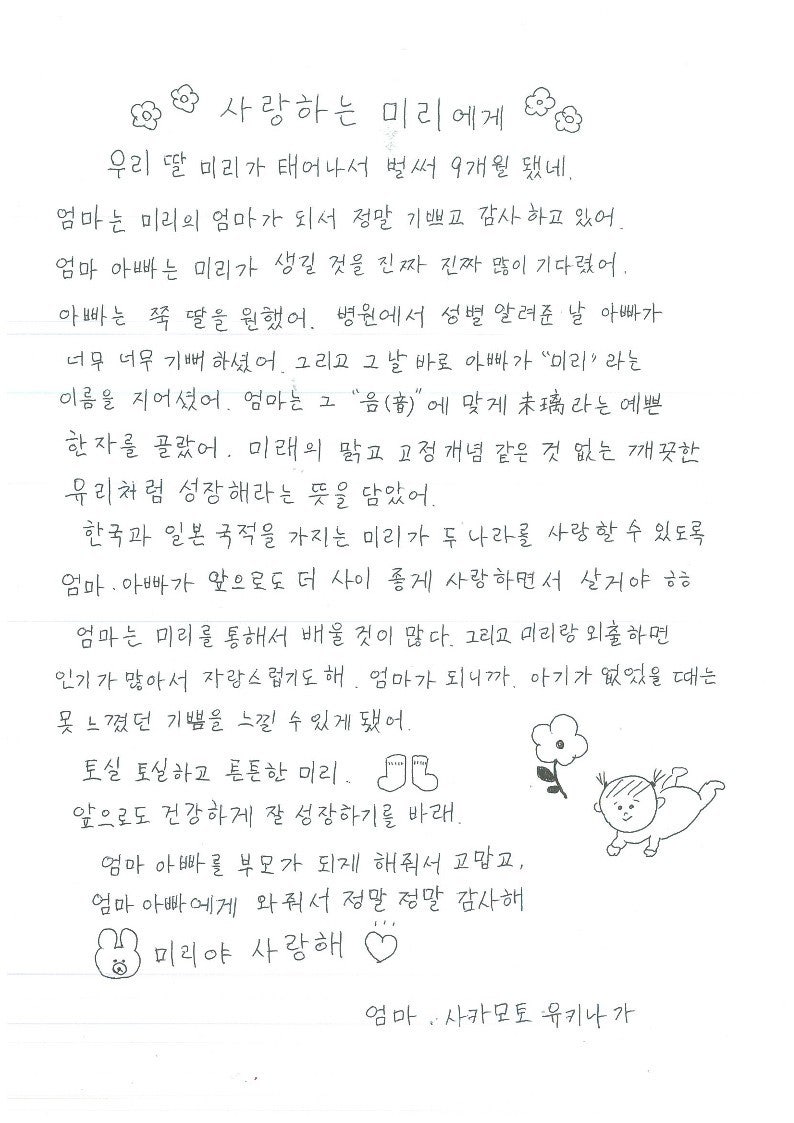 사랑하는 미리에게
우리 딸 미리가 태어나서 벌써 9개월 됐네.
엄마는 미리의 엄마가 되서 정말 기쁘고 감사하고 있어.
엄마 아빠는 미리가 생길 것을 진짜 진짜 많이 기다렸어.
아빠는 쭉 딸을 원했어. 병원에서 성별 알려준 날 아빠가
너무 너무 기뻐하셨어. 그리고 그 날 바로 아빠가 “미리” 라는
이름을 지어셨어. 엄마는 그 “음(音)”에 맞게 未璃라는 예쁜
한자를 골랐어. 미래의 맑고 고정개념 같은 것 없는 깨끗한
뮤리처럼 성장해라는 뜻을 담았어.
한국과 일본 국적을 가지는 미리가 두 나라를 사랑할 수 있도록
엄마·아빠가 앞으로도 더 사이 좋게 사랑하면서 살거야 ㅎㅎ
엄마는 미리를 통해서 배울 것이 많다. 그리고 미리랑 외출하면
인기가 많아서 자랑스럽기도 해. 엄마가 되니까. 아기가 없었을 때는
못 느꼈던 기쁨을 느낄 수 있게 됐어.
토실 토실하고 튼튼한 미리.
앞으로도 건강하게 잘 성장하기를 바래.
엄마 아빠를 부모가 되게 해줘서 고맙고,
엄마 아빠에게 와줘서 정말 정말 감사해
미리야 사랑해
엄마. 사카모토 유키나가